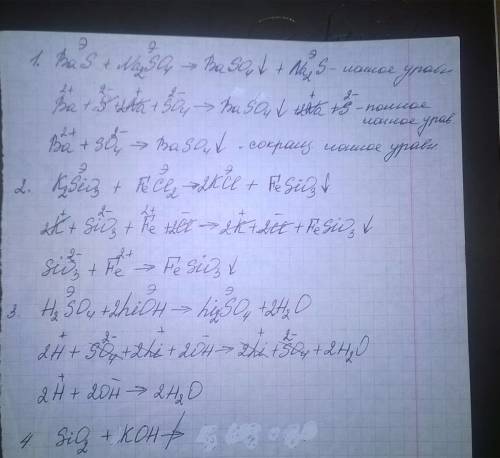 1. BaS + Na₂SO₄ → BaSO₄↓ + Na₂S - ионное уравн
Ba²⁺ + S²⁻ + 2Na⁺ + SO₄²⁻ → BaSO₄↓ 2Na⁺ + S²⁻ - полное
ионное урав
Ba²⁺ + SO₄²⁻ → BaSO₄↓ - сокращ ионное уравн
2. K₂SiO₃ + FeCl₂ → 2KCl + FeSiO₃↓
2K⁺ + SiO₃²⁻ + Fe²⁺ + 2Cl⁻ → 2K⁺ + 2Cl⁻ + FeSiO₃↓
SiO₃²⁻ + Fe²⁺ → FeSiO₃↓
3. H₂SO₄ + 2LiOH → Li₂SO₄ + 2H₂O
2H⁺ + SO₄²⁻ + 2Li⁺ + 2OH⁻ → 2Li⁺ + SO₄²⁻ + 2H₂O
2H⁺ + 2OH⁻ → 2H₂O
4 SiO₂ + KOH ↛